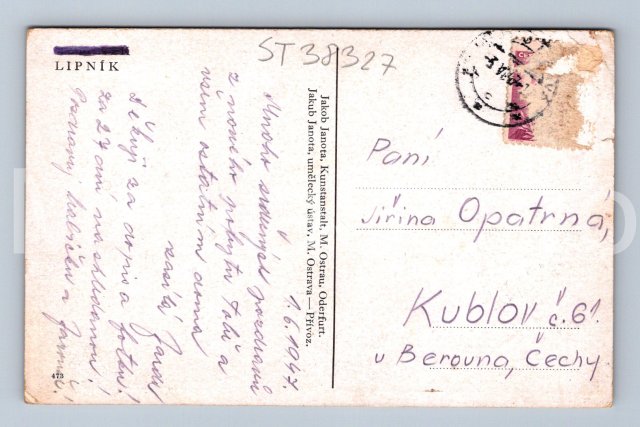 ST38327
LIPNÍK
1.6.1947.
Mnoho srdečných pozdravů
z nového pobytu Tobě a
všem ostatním doma
zasílá
Děkuji za dopis a fotku!
Za 27 dní na shledanou!
Pozdravuj babičku a
473
Jakob Janota, Kunstanstalt, M. Ostrau, Oderfurt.
Jakub Janota, umělecký ústav, M. Ostrava—Přívoz.
Paní
Jiřina Opatrná,
Kublov č.61.
u Berouna, Čechy